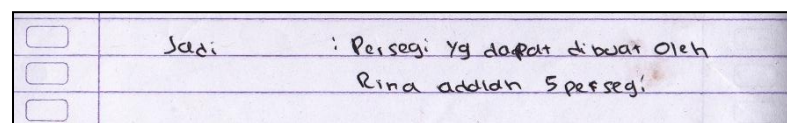 Jadi : Persegi yg dapat dibuat oleh
Rina adalah 5 persegi